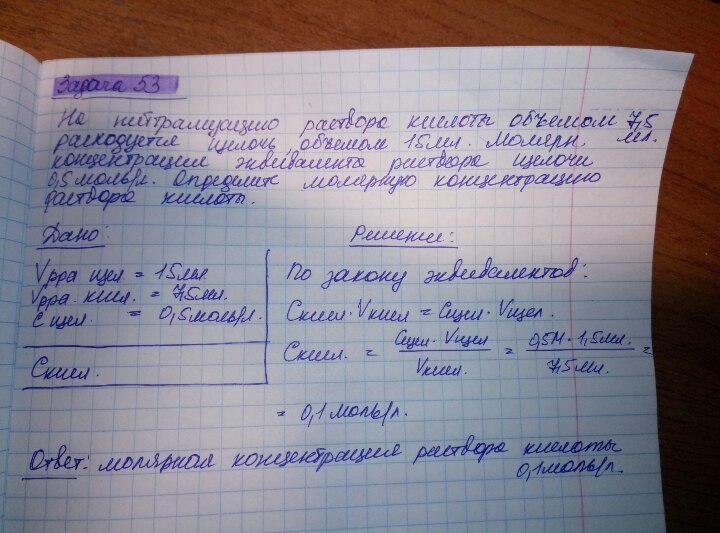 Задача 53
На нейтрализацию раствора кислоты объемом 7,5 мл.
расходуется щелочь объемом 15 мл. Молярн.
концентрация эквивалента раствора щелочи
0,5 моль/л. Определить молярную концентрацию
раствора кислоты.
Дано:
Vрра щел = 15мл
Vрра кисл. = 7,5мл.
C щел. = 0,5моль/л.
Cкисл.
Решение:
По закону эквивалентов:
Cкисл · Vкисл = Cщел · Vщел.
Cкисл. = Cщел · Vщел / Vкисл. = 0,5М · 1,5мл. / 7,5мл. =
= 0,1моль/л.
Ответ: молярная концентрация раствора кислоты
0,1моль/л.